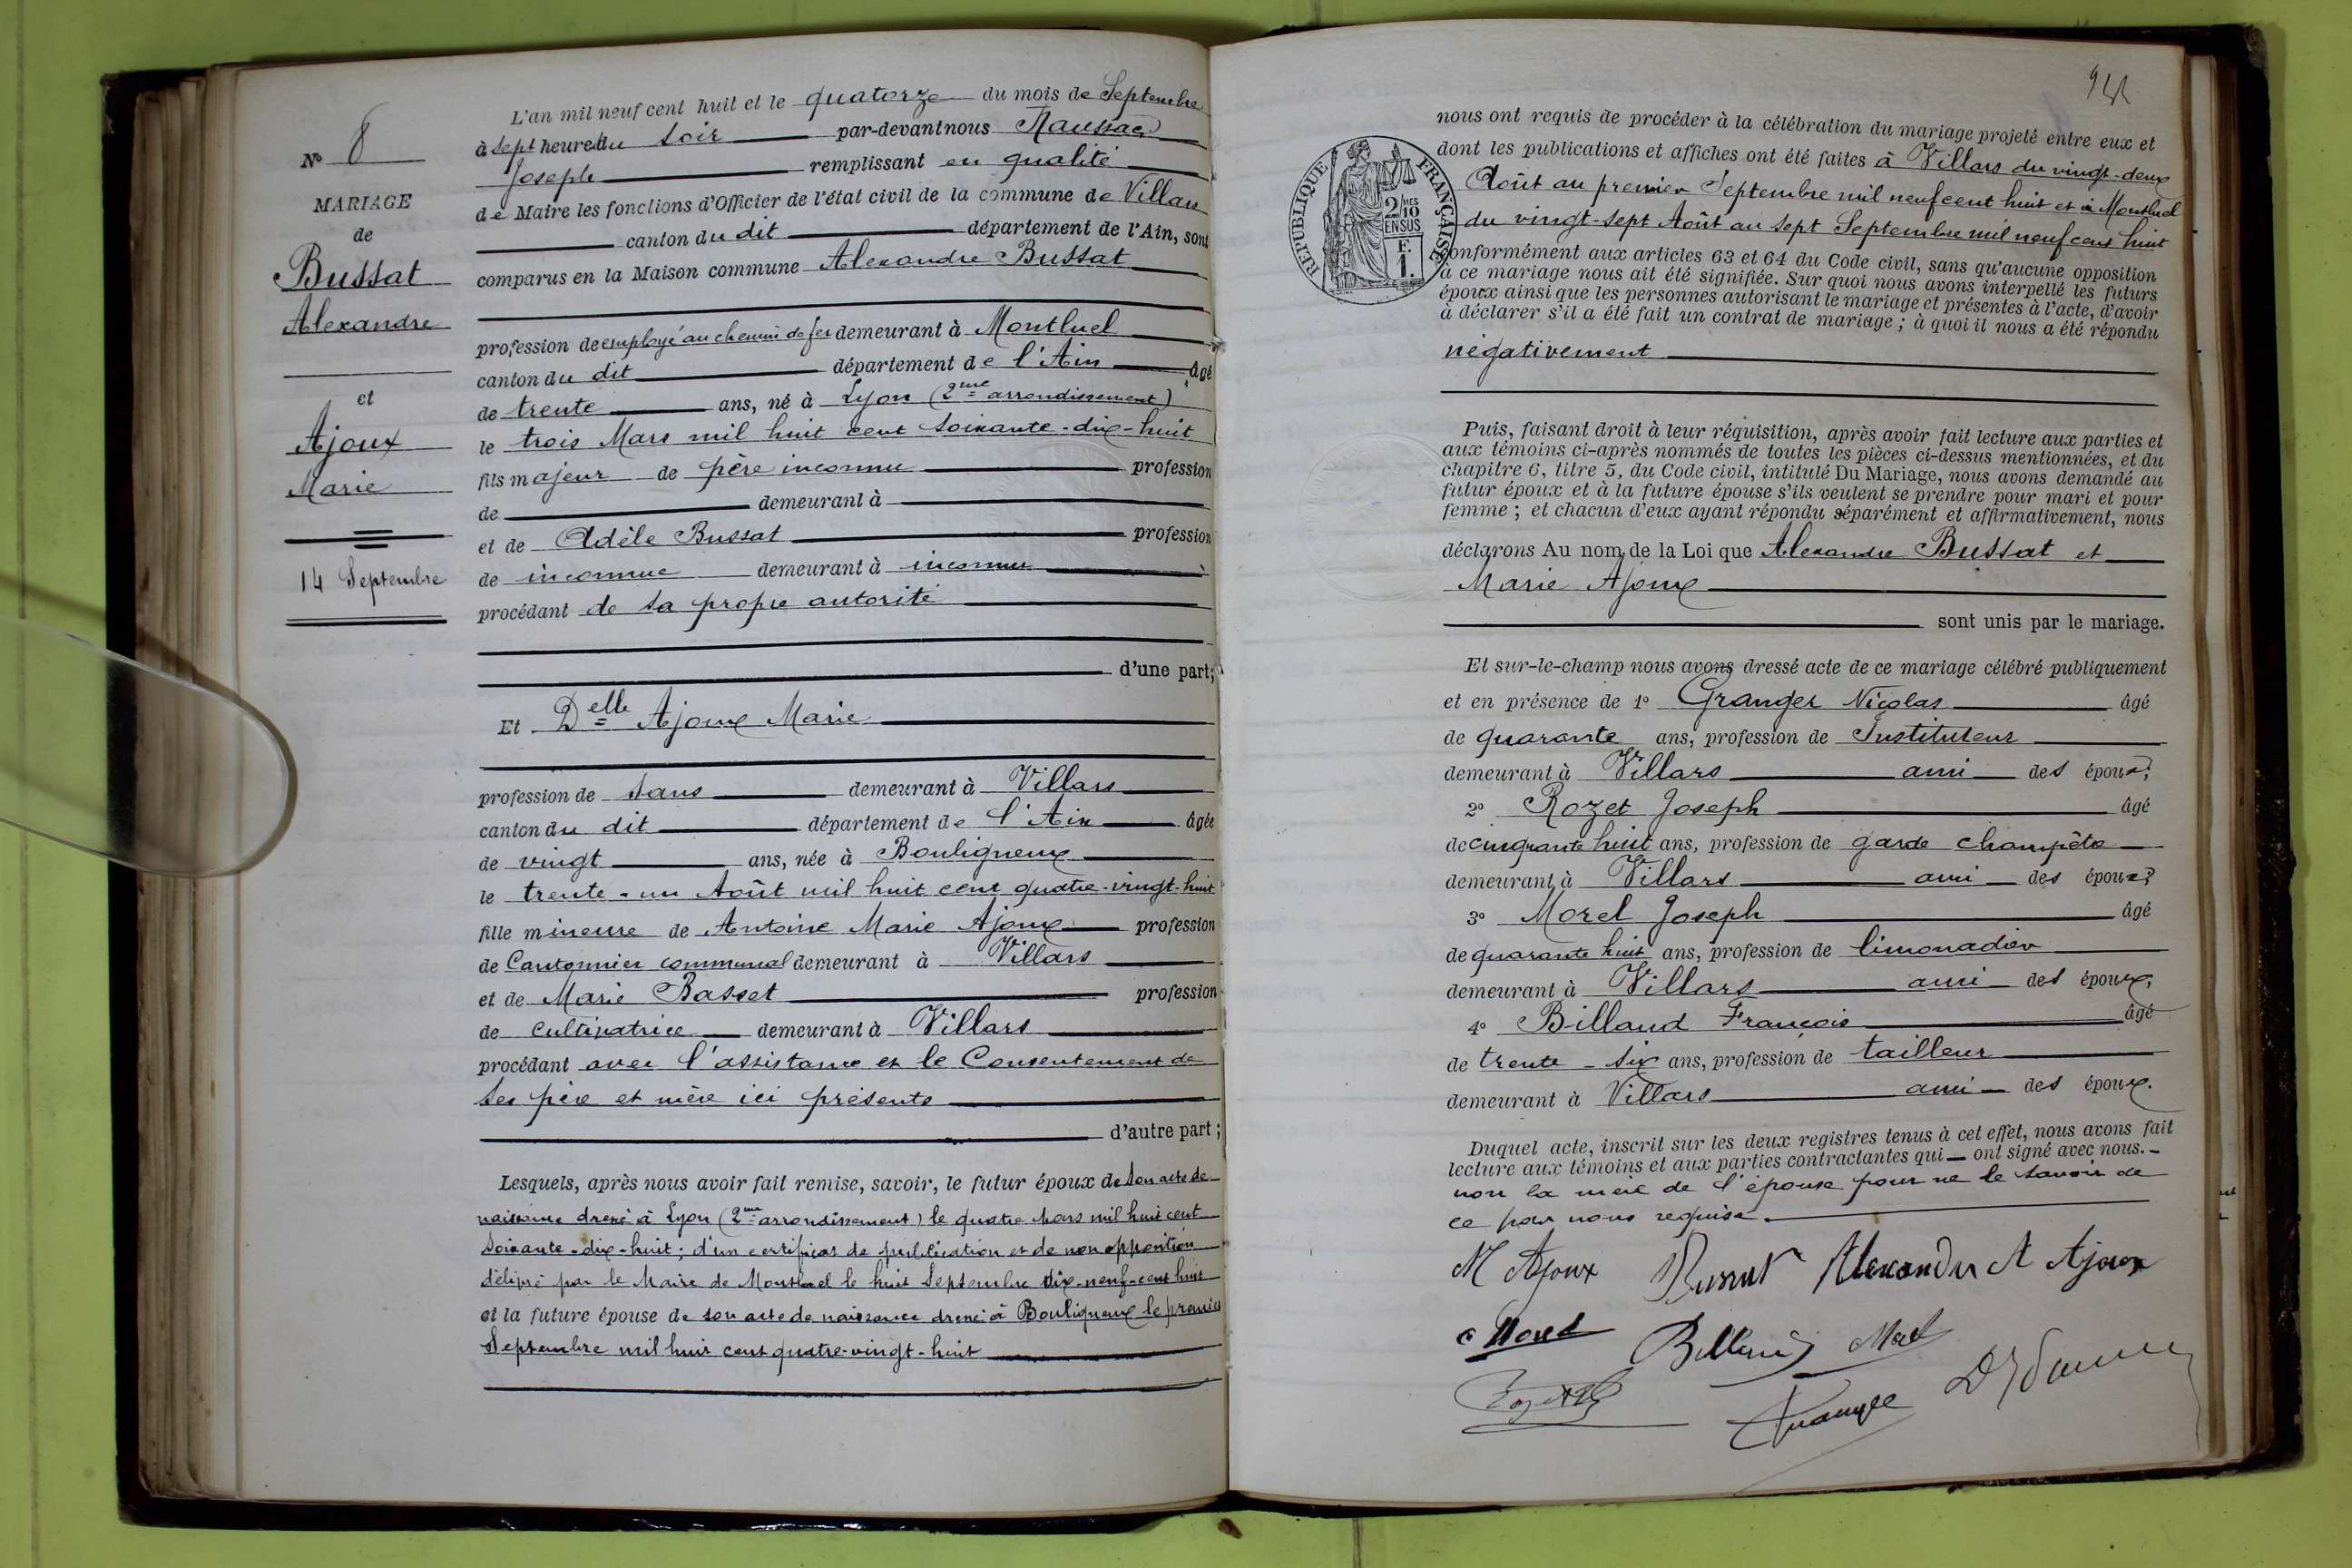 N° 8
MARIAGE
de
Bussat
Alexandre
et
Ajoux
Marie
14 Septembre
L'an mil neuf cent huit et le quatorze du mois de Septembre
à sept heures du soir par-devant nous
Joseph remplissant en qualité
de Maire les fonctions d'Officier de l'état civil de la commune de Villars
canton du dit département de l'Ain, sont
comparus en la Maison commune Alexandre Bussat
profession de employé au chemin de fer demeurant à Montluel
canton du dit département de l'Ain âgé
de trente ans, né à Lyon (2me arrondissement)
le trois Mars mil huit cent soixante-dix-huit
fils majeur de père inconnu profession
de demeurant à
et de Adèle Bussat profession
de inconnue demeurant à inconnu
procédant de sa propre autorité
d'une part;
Et Delle Ajoux Marie
profession de sans demeurant à Villars
canton du dit département de l'Ain âgée
de vingt ans, née à Bouligneux
le trente-un Août mil huit cent quatre-vingt-huit
fille mineure de Antoine Marie Ajoux profession
de Cantonnier communal demeurant à Villars
et de Marie Basset profession
de cultivatrice demeurant à Villars
procédant avec l'assistance et le Consentement de
ses père et mère ici présents
d'autre part;
Lesquels, après nous avoir fait remise, savoir, le futur époux de son acte de
naissance dressé à Lyon (2me arrondissement) le quatre Mars mil huit cent
soixante-dix-huit; d'un certificat de publication et de non opposition
délivré par le Maire de Montluel le huit Septembre dix-neuf-cent huit
et la future épouse de son acte de naissance dressé à Bouligneux le premier
Septembre mil huit cent quatre-vingt-huit
nous ont requis de procéder à la célébration du mariage projeté entre eux et
dont les publications et affiches ont été faites à Villars du vingt-deux
Août au premier Septembre mil neuf cent huit et à Montluel
du vingt-sept Août au sept Septembre mil neuf cent huit
conformément aux articles 63 et 64 du Code civil, sans qu'aucune opposition
à ce mariage nous ait été signifiée. Sur quoi nous avons interpellé les futurs
époux ainsi que les personnes autorisant le mariage et présentes à l'acte, d'avoir
à déclarer s'il a été fait un contrat de mariage; à quoi il nous a été répondu
négativement
RÉPUBLIQUE FRANÇAISE
2/10MES
EN SUS
F.
1.
Puis, faisant droit à leur réquisition, après avoir fait lecture aux parties et
aux témoins ci-après nommés de toutes les pièces ci-dessus mentionnées, et du
chapitre 6, titre 5, du Code civil, intitulé Du Mariage, nous avons demandé au
futur époux et à la future épouse s'ils veulent se prendre pour mari et pour
femme; et chacun d'eux ayant répondu séparément et affirmativement, nous
déclarons Au nom de la Loi que Alexandre Bussat et
Marie Ajoux
sont unis par le mariage.
Et sur-le-champ nous avons dressé acte de ce mariage célébré publiquement
et en présence de 1° Granger Nicolas âgé
de quarante ans, profession de Instituteur
demeurant à Villars ami des époux;
2° Rozet Joseph âgé
de cinquante huit ans, profession de garde champête
demeurant à Villars ami des époux;
3° Morel Joseph âgé
de quarante huit ans, profession de limonadier
demeurant à Villars ami des époux;
4° Billaud François âgé
de trente-six ans, profession de tailleur
demeurant à Villars ami des époux.
Duquel acte, inscrit sur les deux registres tenus à cet effet, nous avons fait
lecture aux témoins et aux parties contractantes qui ont signé avec nous.
non la mère de l'épouse pour ne le savoir de
ce par nous requise.
M Ajoux Bussat Alexandre A Ajoux
Morel